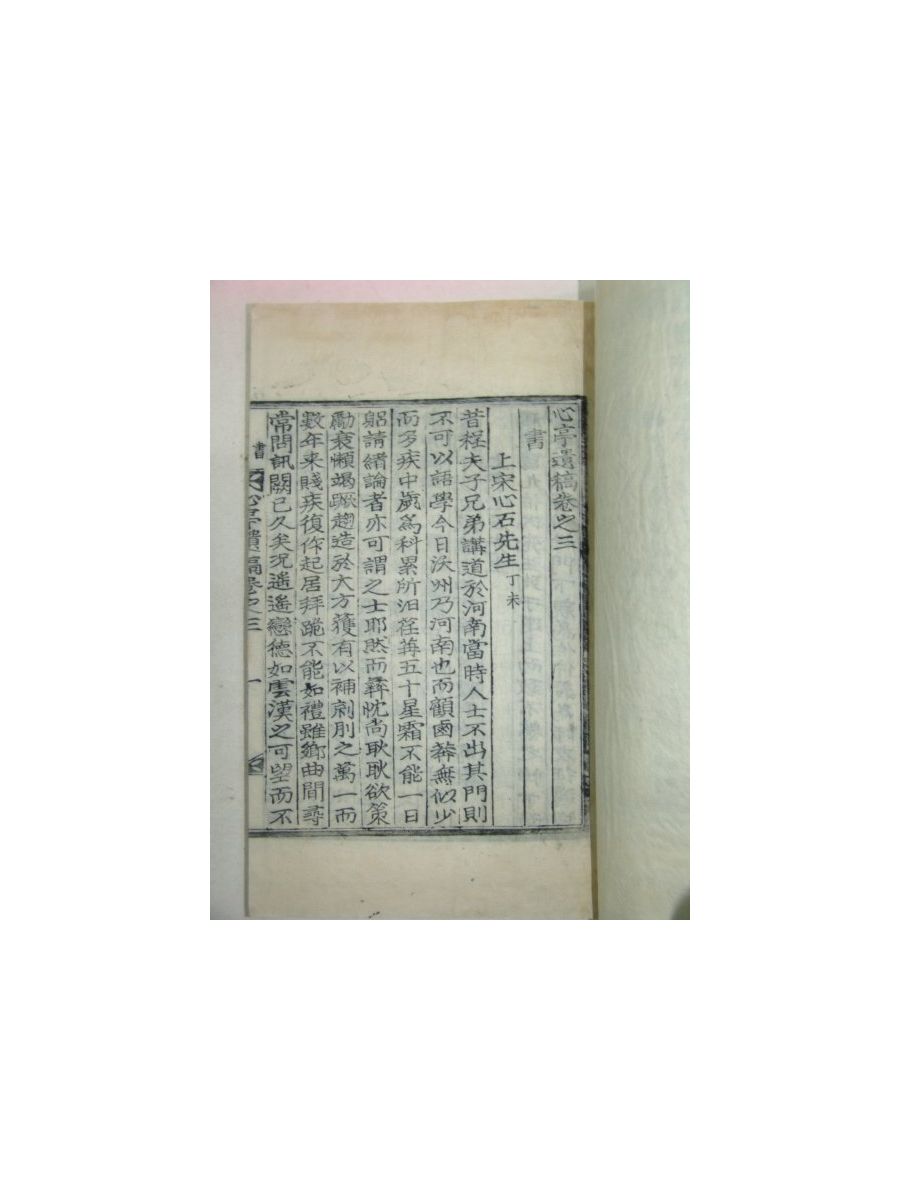 心亭遺稿卷之三
書
上宋心石先生 丁未
昔程夫子兄弟講道於河南當時人士不出其門則
不可以語學今日沃州乃河南也而顧鹵莽無似少
而多疾中歲爲科累所汩荏苒五十星霜不能一日
躬請緒論者亦可謂之士耶然而彛忱尙耿耿欲策
勵衰懶竭蹶趨造於大方獲有以補劓刖之萬一而
數年来賤疾復作起居拜跪不能如禮雖鄉曲間尋
常問訊闕已久矣况遙遙戀德如雲漢之可望而不
書 心亭遺稿卷之三 一